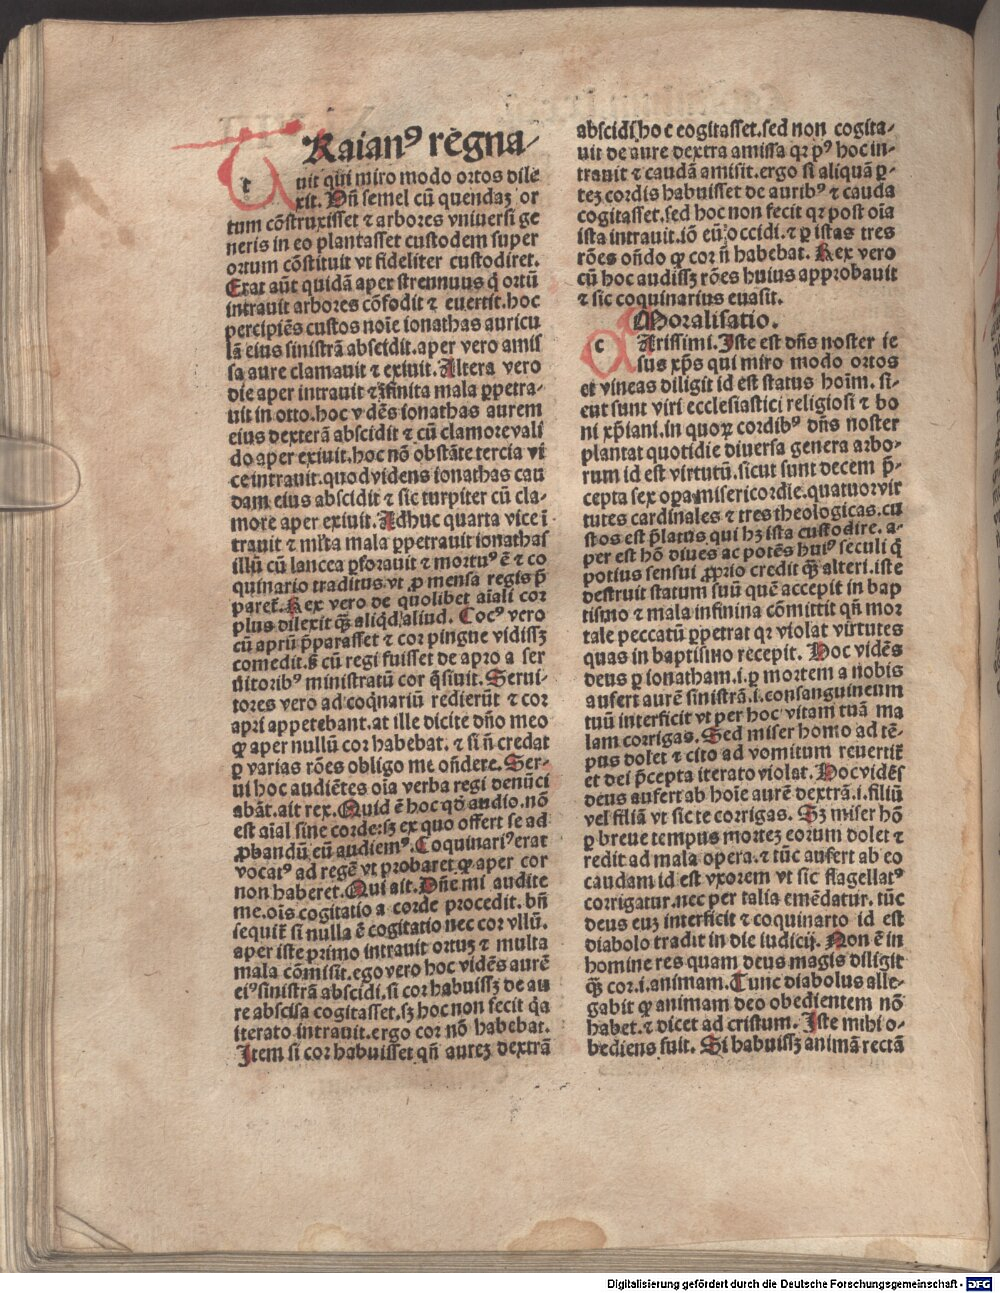 tRaianꝰ regna⸗
uit qui miro modo ortos dile
xit. Dn̄ semel cū quendaꝫ or
tum cōstruxisset ⁊ arbores vniuersi ge
neris in eo plantasset custodem super
ortum cōstituit vt fideliter custodiret.
Erat aūt quidā aper strennuus q̄ ortū
intrauit arbores cōfodit ⁊ euertit.hoc
percipiēs custos noīe ionathas auricu
lā eius sinistrā abscidit.aper vero amis
sa aure clamauit ⁊ exiuit.Altera vero
die aper intrauit ⁊ īfinita mala ꝑpetra⸗
uit in otto.hoc vidēs ionathas aurem
eius dexterā abscidit ⁊ cū clamore vali
do aper exiuit.hoc nō obstāte tercia vi
ce intrauit.quod videns ionathas cau
dam eius abscidit ⁊ sic turpiter cū cla⸗
more aper exiuit.Adhuc quarta vice ī
trauit ⁊ ml̄ta mala ꝑpetrauit ionathas
illū cū lancea ꝑforauit ⁊ mortuꝰ ē ⁊ co
quinario traditus vt ꝓ mensa regis p̄
paret̄.Rex vero de quolibet aīali cor
plus dilexit qꝫ̄ aliqd̄ aliud. Cocꝰ vero
cū aprū p̄parasset ⁊ cor pingue vidissꝫ
comedit.s̄ cū regi fuisset de apro a ser
uitoribꝰ ministratū cor q̄siuit.Serui⸗
tores vero ad coqnariū redierūt ⁊ cor
apri appetebant.at ille dicite dn̄o meo
ꝙ aper nullū cor habebat. ⁊ si n̄ credat
ꝑ varias rōes obligo me on̄dere.Ser⸗
ui hoc audiētes oīa verba regi denūci
abāt.ait rex.Quid ē hoc qd̄ audio.nō
est aīal sine corde:sꝫ ex quo offert se ad
ꝓbandū eū audiemꝰ.Coquinariꝰ erat
vocatꝰ ad regē vt probaret ꝙ aper cor
non haberet.Qui ait.Dn̄e mi audite
me.oīs cogitatio a corde procedit.bn̄
sequit̄ si nulla ē cogitatio nec cor vllū.
aper iste primo intrauit ortuꝫ ⁊ multa
mala cōmisit.ego vero hoc vidēs aurē
eiꝰ sinistrā abscidi.si cor habuissꝫ de au
re abscisa cogitasset.sꝫ hoc non fecit qa
iterato intrauit.ergo cor nō habebat.
Item si cor habuisset qn̄ aureꝫ dextrā
abscidi hoc cogitasset.sed non cogita⸗
uit de aure dextra amissa qꝛ pꝰ hoc in⸗
trauit ⁊ caudā amisit.ergo si aliquā ꝑ⸗
teꝫ cordis habuisset de auribꝰ ⁊ cauda
cogitasset.sed hoc non fecit qꝛ post oīa
ista intrauit.iō eū occidi.⁊ ꝑ istas tres
rōes on̄do ꝙ cor n̄ habebat. Rex vero
cū hoc audissꝫ rōes huius approbauit
⁊ sic coquinarius euasit.
Moralisatio.
cArissimi.Iste est dn̄s noster ie
sus xp̄s qui miro modo ortos
et vineas diligit id est status hoīm. si⸗
cut sunt viri ecclesiastici religiosi ⁊ bo
ni xp̄iani.in quoꝝ cordibꝰ dn̄s noster
plantat quotidie diuersa genera arbo⸗
rum id est virtutū.sicut sunt decem p̄⸗
cepta sex oꝑa misericordie.quatuor vir
tutes cardinales ⁊ tres theologicas.cu
stos est p̄latus qui hꝫ ista custodire. a⸗
per est hō diues ac potēs huiꝰ seculi q̄
potius sensui ꝓprio credit qꝫ̄ alteri.iste
destruit statum suū quē accepit in bap
tismo ⁊ mala infinina cōmittit qn̄ mor
tale peccatū ꝑpetrat qꝛ violat virtutes
quas in baptismo recepit. Hoc vidēs
deus ꝑ ionatham.i.ꝑ mortem a nobis
aufert aurē sinistrā.i.consanguineum
tuū interficit vt per hoc vitam tuā ma
lam corrigas.Sed miser homo ad tē⸗
pus dolet ⁊ cito ad vomitum reuertit̄
et dei p̄cepta iterato violat. Hoc vidēs
deus aufert ab hoīe aurē dextrā.i.filiū
vel filiā vt sic te corrigas. Sꝫ miser hō
ꝑ breue tempus morteꝫ eorum dolet ⁊
redit ad mala opera.⁊ tūc aufert ab eo
caudam id est vxorem vt sic flagellatꝰ
corrigatur.nec per talia emēdatur. tūc
deus euꝫ interficit ⁊ coquinario id est
diabolo tradit in die iudicij. Non ē in
homine res quam deus magis diligit
qꝫ̄ cor.i.animam.Tunc diabolus alle⸗
gabit ꝙ animam deo obedientem nō
habet.⁊ dicet ad cristum. Iste mihi o⸗
bediens fuit. Si habuissꝫ animā rectā
Digitalisierung gefördert durch die Deutsche Forschungsgemeinschaft - DFG